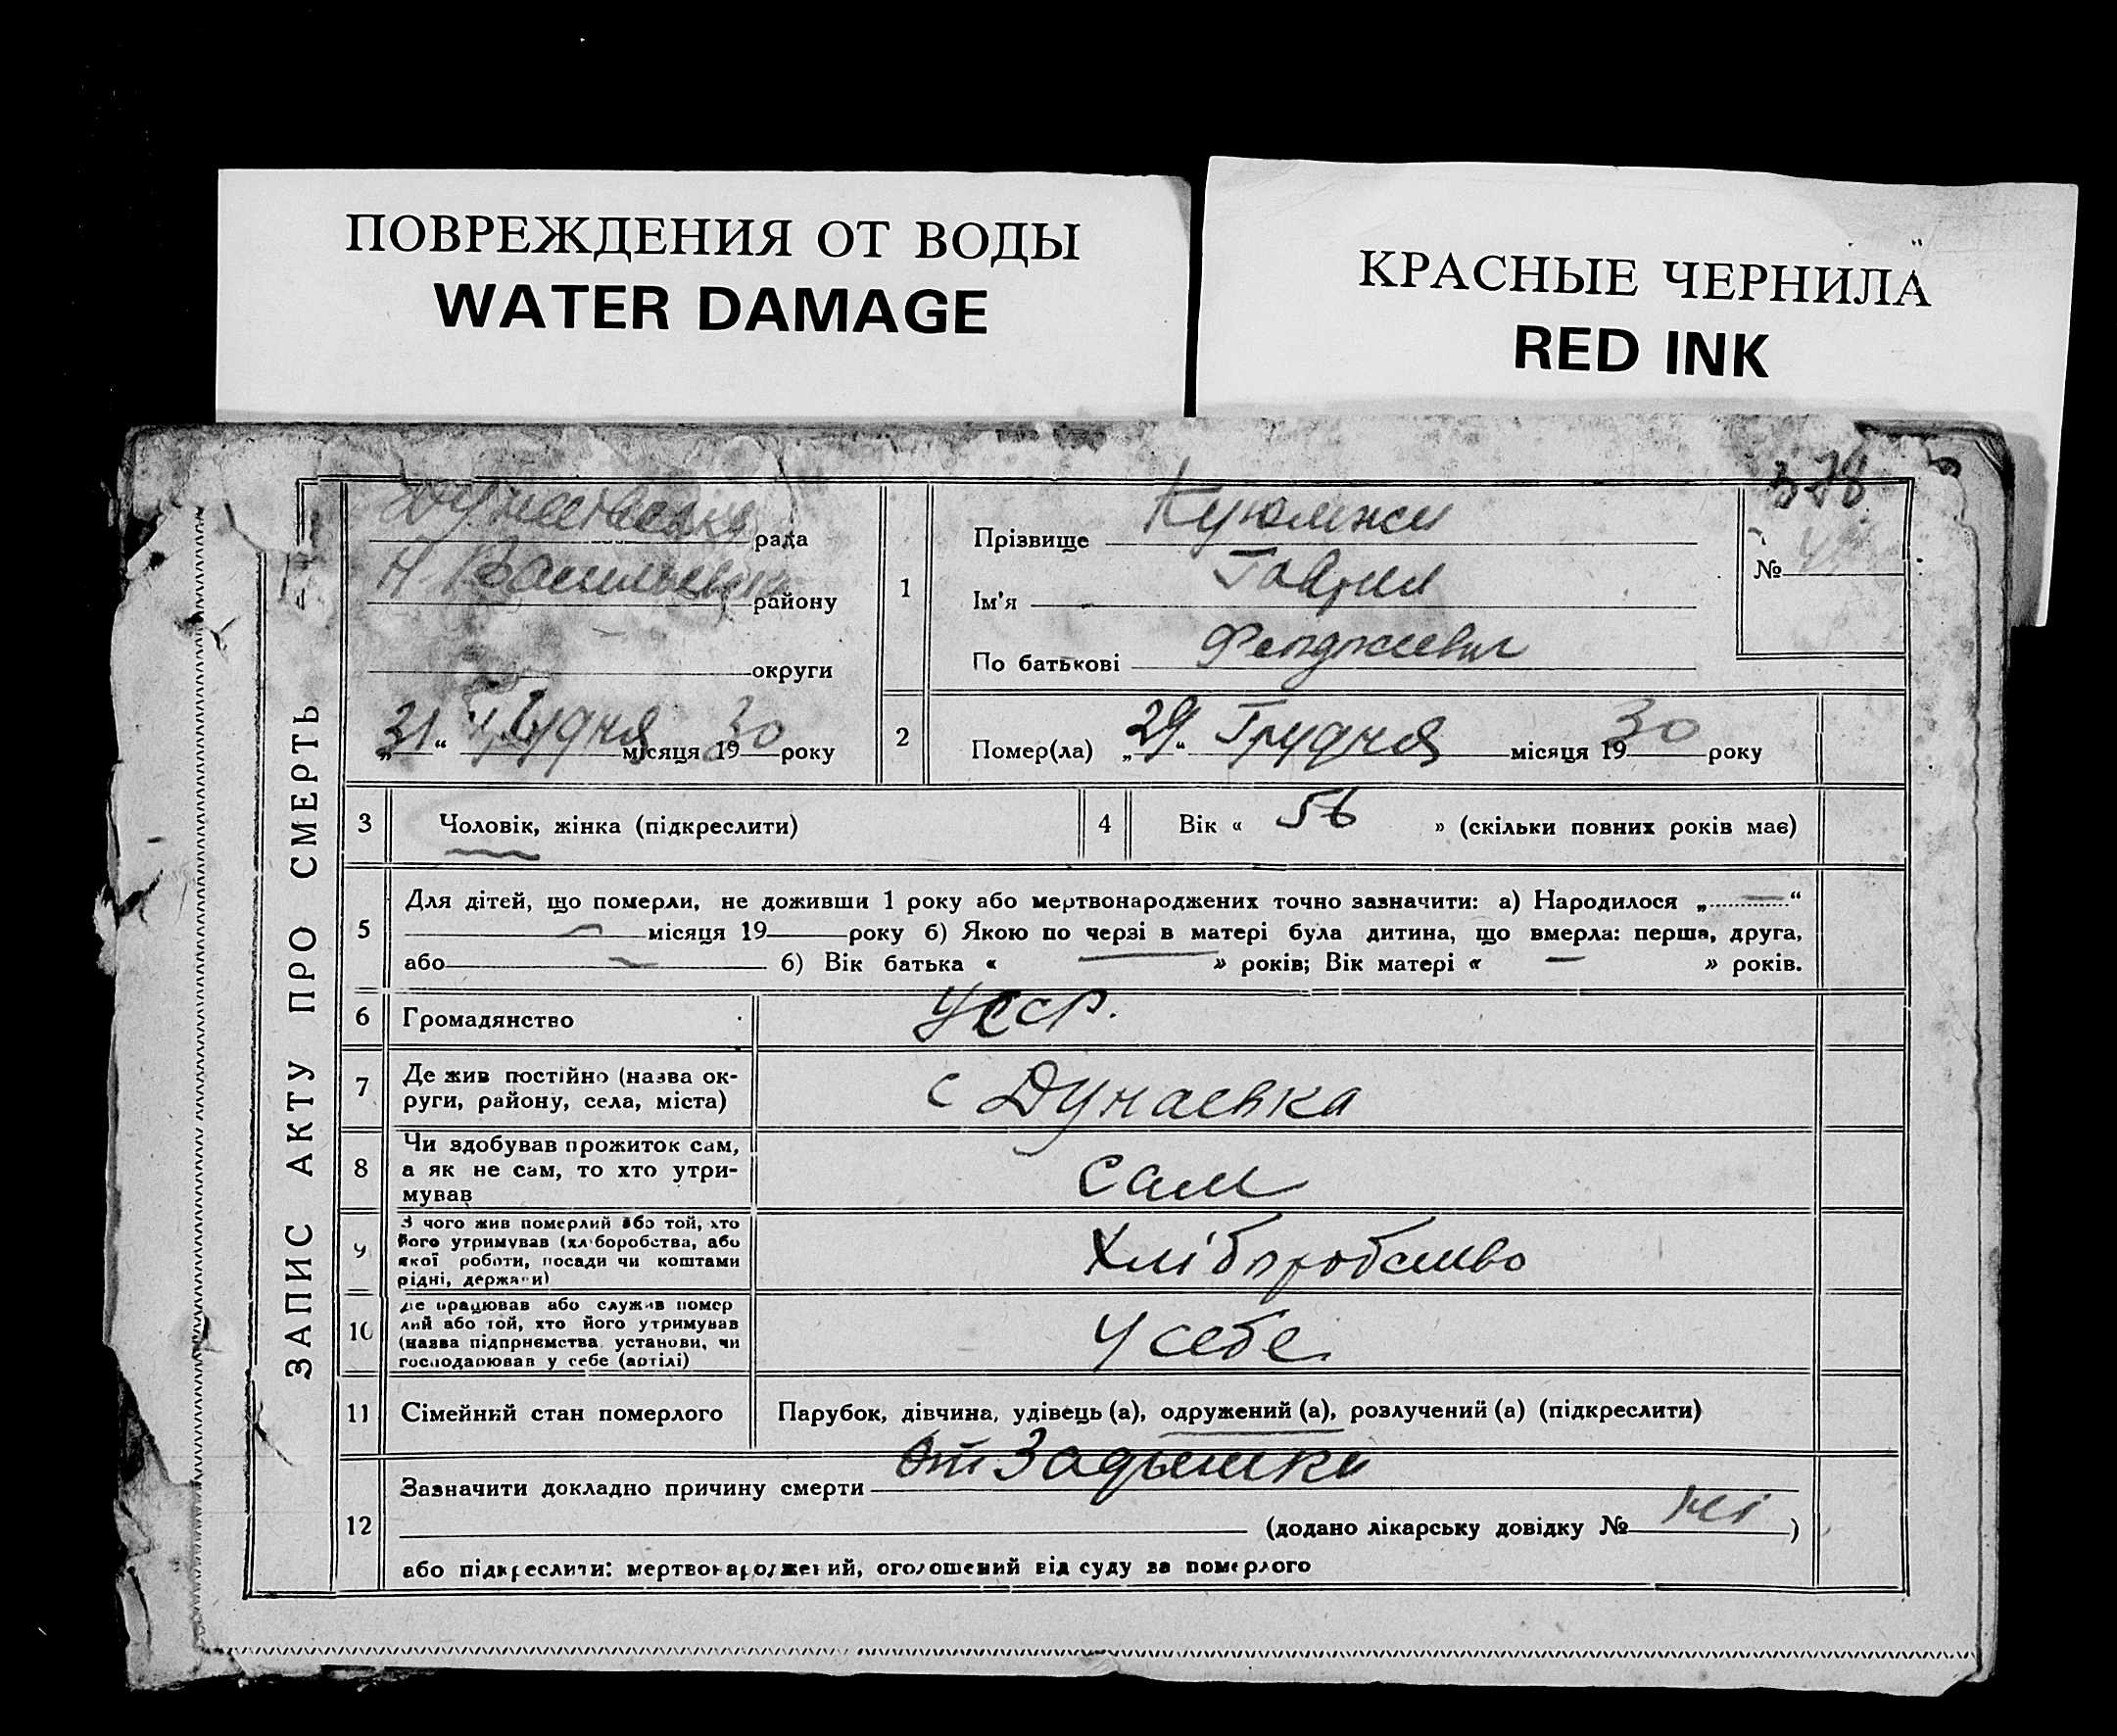 ПОВРЕЖДЕНИЯ ОТ ВОДЫ
WATER DAMAGE
КРАСНЫЕ ЧЕРНИЛА
RED INK
ЗАПИС АКТУ ПРО СМЕРТЬ
378
№
рада
Н. Васильевка району
округи
„31“ Грудня місяця 1930 року
1
Прізвище Куюмжи
Ім'я Гаврил
По батькові
2
Помер(ла) „29“ Грудня місяця 1930 року
3 Чоловік, жінка (підкреслити)
4 Вік « 56 » (скільки повних років має)
5 Для дітей, що померли, не доживши 1 року або мертвонароджених точно зазначити: а) Народилося „—“
— місяця 19 року б) Якою по черзі в матері була дитина, що вмерла: перша, друга,
або — б) Вік батька « — » років; Вік матері « — » років.
6 Громадянство УССР.
7 Де жив постійно (назва ок-
руги, району, села, міста)
с Дунаевка
8 Чи здобував прожиток сам,
а як не сам, то хто утри-
мував
Сам
9 З чого жив померлий або той, хто
його утримував (хліборобства, або
якої роботи, посади чи коштами
рідні, держави)
Хліборобство
10 Де працював або служив помер
лий або той, хто його утримував
(назва підприємства, установи, чи
господарював у себе (артілі)
У себе
11 Сімейний стан померлого Парубок, дівчина, удівець (а), одружений (а), розлучений (а) (підкреслити)
12 Зазначити докладно причину смерти От Задышки
(додано лікарську довідку № ні)
або підкреслити: мертвонароджений, оголошений від суду за померлого